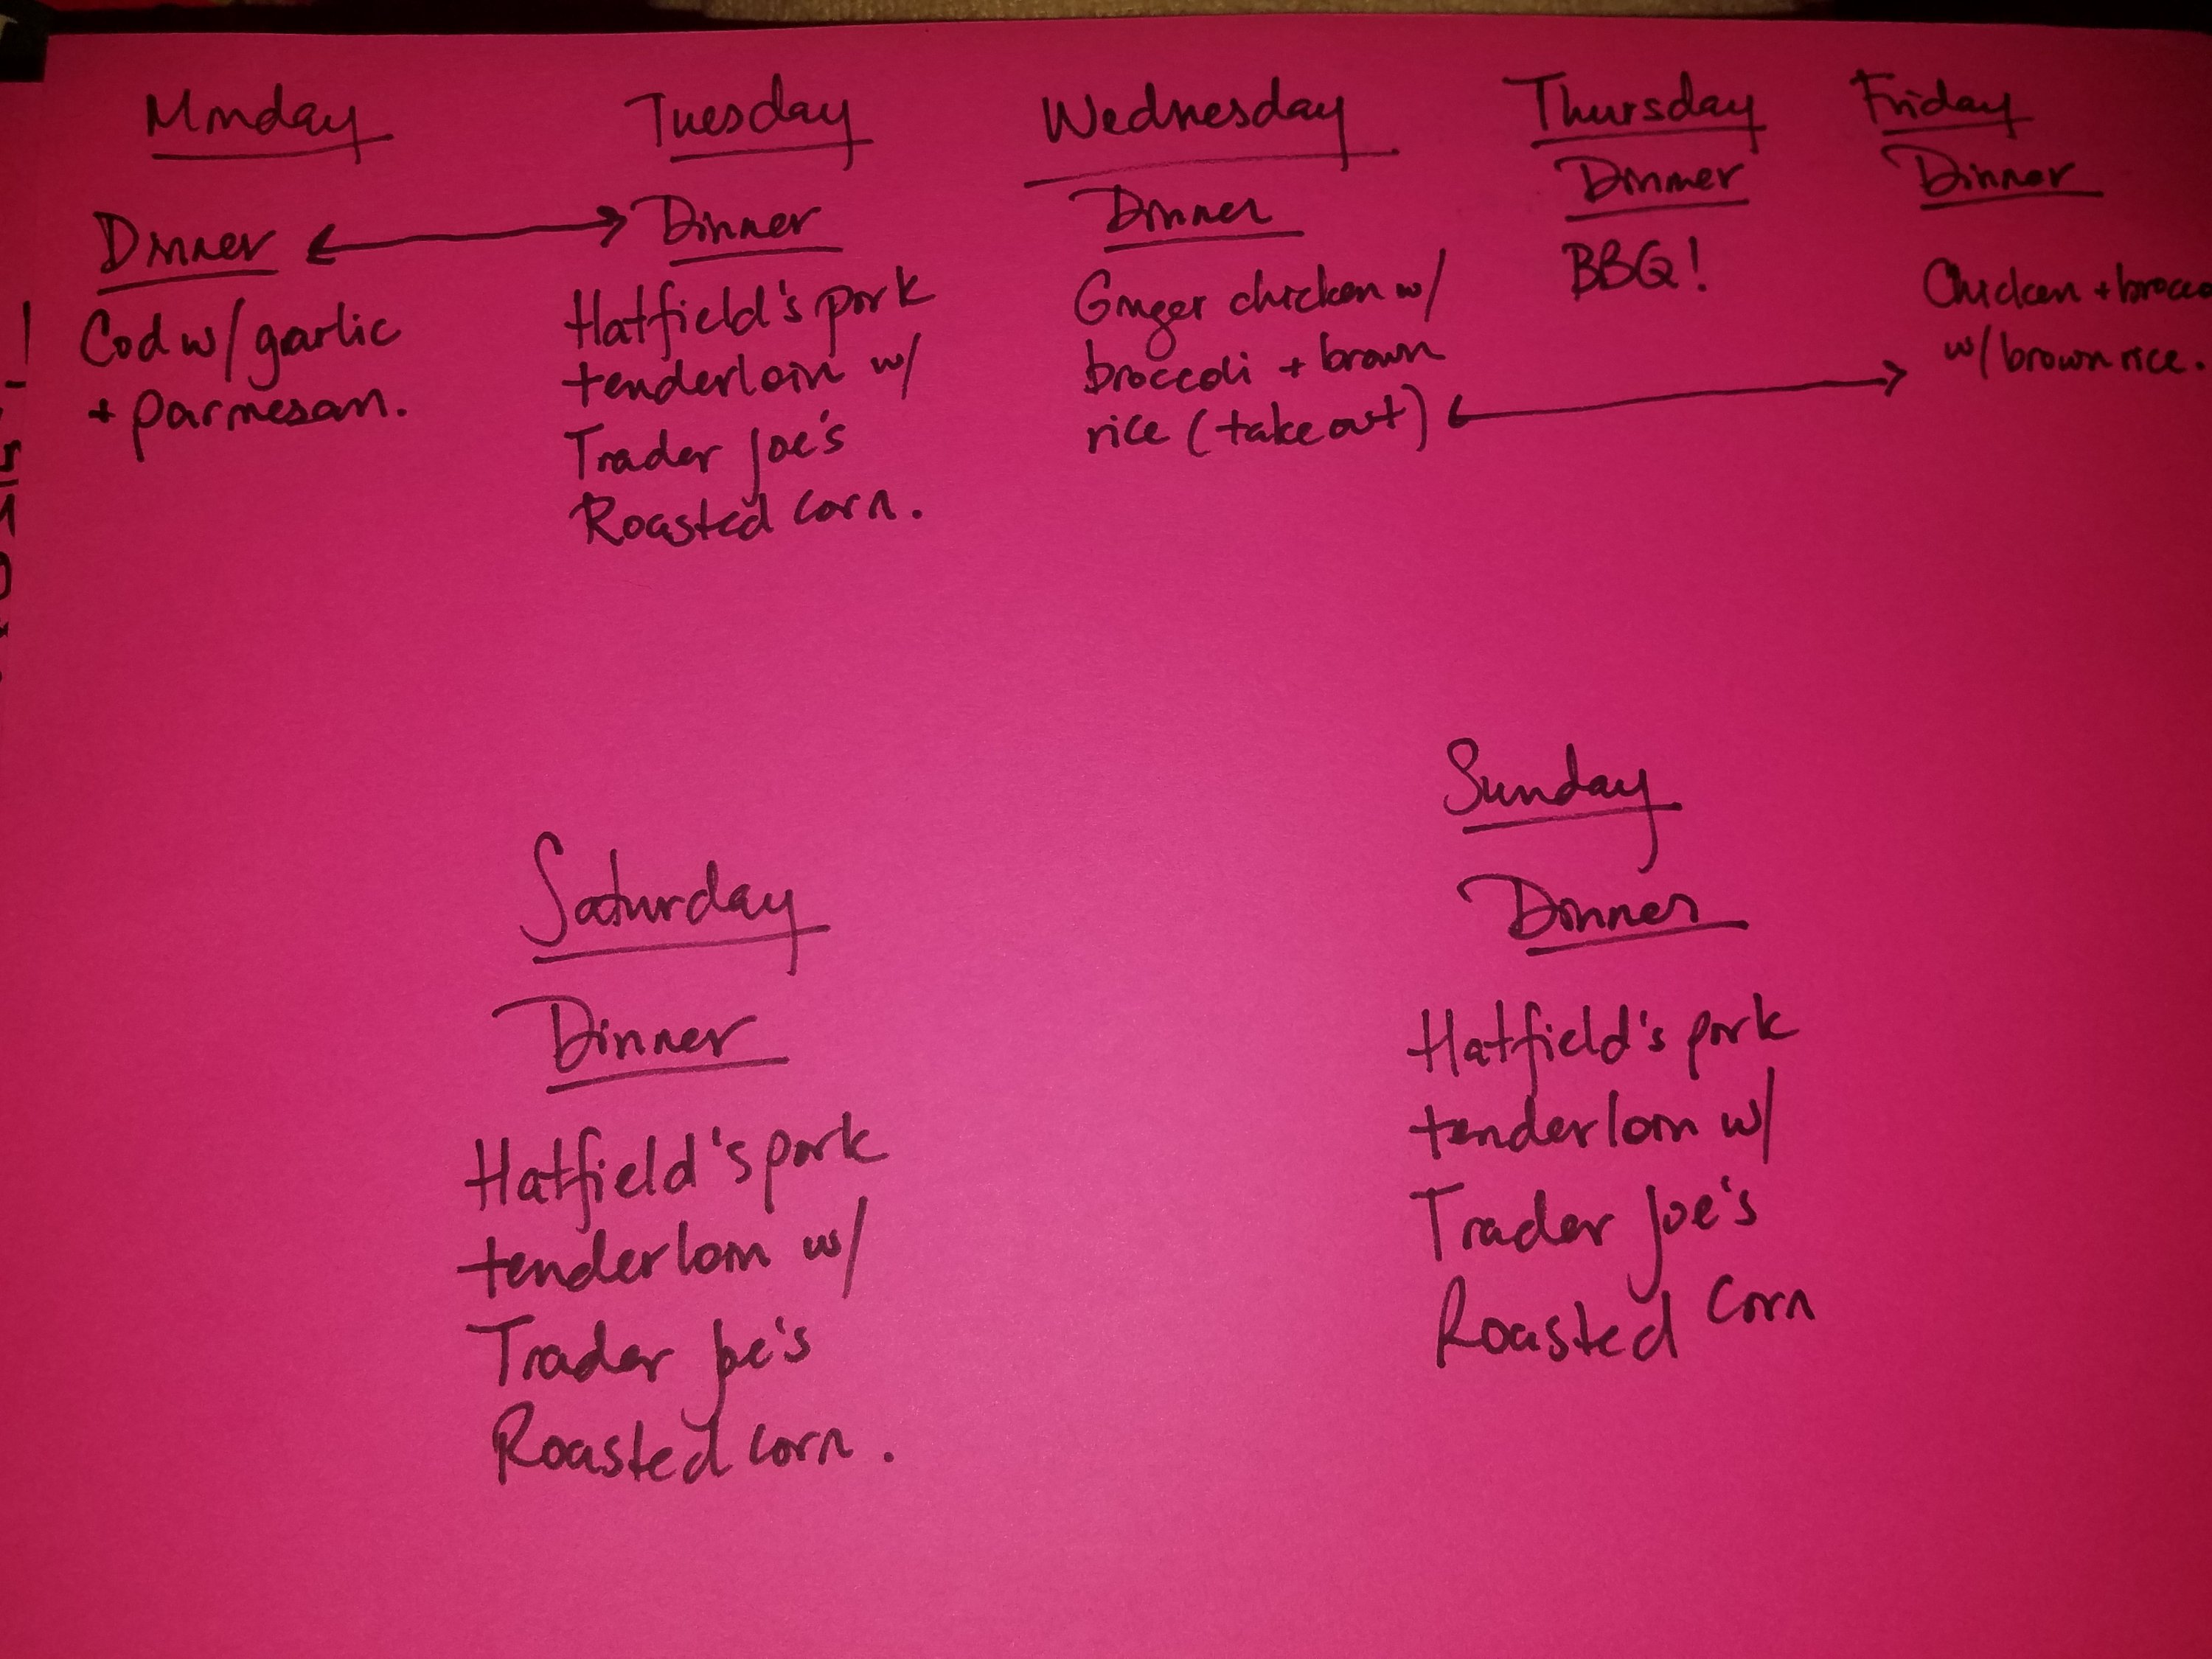 Monday
Dinner
Cod w/ garlic
+ parmesan.
Tuesday
Dinner
Hatfield's pork
tenderloin w/
Trader Joe's
Roasted corn.
Wednesday
Dinner
Ginger chicken w/
broccoli + brown
rice (take out)
Thursday
Dinner
BBQ!
Friday
Dinner
Chicken + brocco
w/ brown rice.
Saturday
Dinner
Hatfield's pork
tenderloin w/
Trader Joe's
Roasted corn.
Sunday
Dinner
Hatfield's pork
tenderloin w/
Trader Joe's
Roasted corn